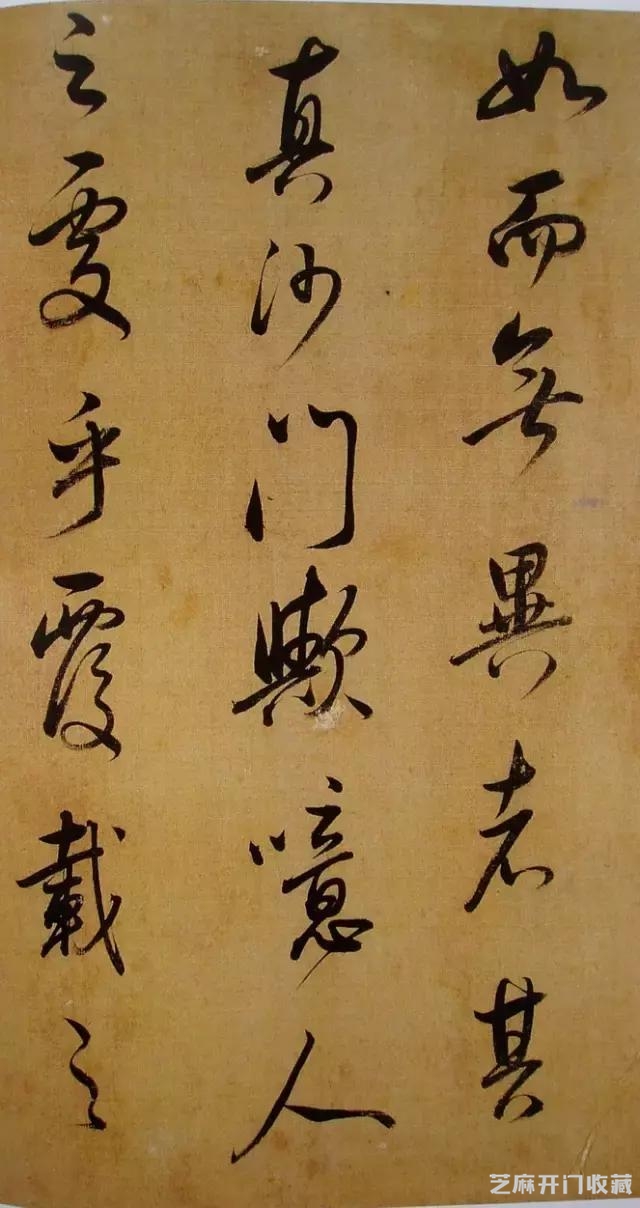 如而無異者其
真沙門歟噫人
之處乎覆載之
芝麻开门收藏